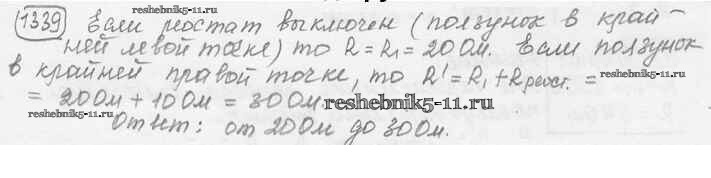 1339 Если реостат выключен (ползунок в край-
ней левой точке) то R = R₁ = 20 Ом. Если ползунок
в крайней правой точке, то R' = R₁ + R реост. =
= 20 Ом + 10 Ом = 30 Ом
Ответ: от 20 Ом до 30 Ом.
reshebnik5-11.ru
reshebnik5-11.ru
reshebnik5-11.ru
reshebnik5-11.ru